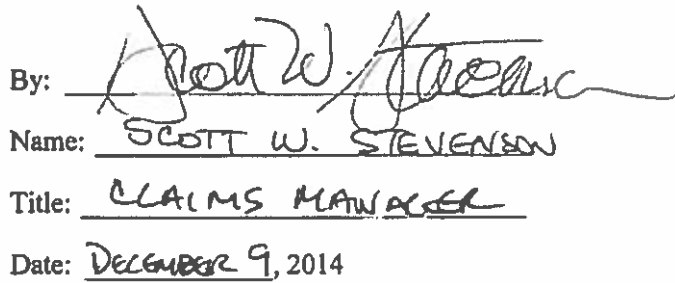 By: Scott W. Stevenson
Name: SCOTT W. STEVENSON
Title: CLAIMS MANAGER
Date: DECEMBER 9, 2014